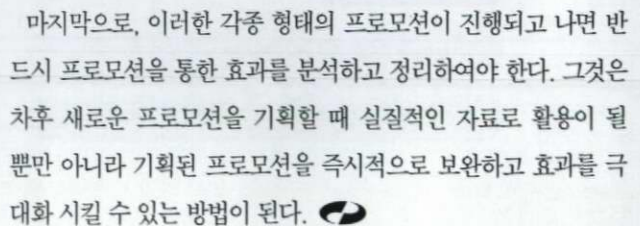 마지막으로, 이러한 각종 형태의 프로모션이 진행되고 나면 반
드시 프로모션을 통한 효과를 분석하고 정리하여야 한다. 그것은
차후 새로운 프로모션을 기획할 때 실질적인 자료로 활용이 될
뿐만 아니라 기획된 프로모션을 즉시적으로 보완하고 효과를 극
대화 시킬 수 있는 방법이 된다.